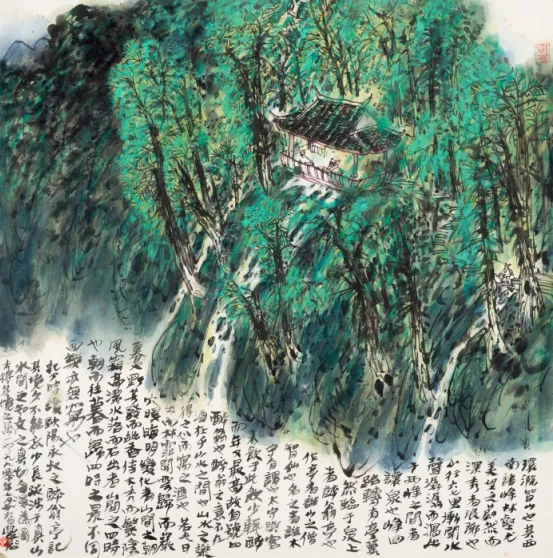 環滁皆山也其西
南諸峰林壑尤
美望之蔚然而
深秀者琅琊也
山行六七里漸聞水
聲潺潺而瀉出
于兩峰之間者
釀泉也峰回
路轉有亭翼
然臨于泉上
者醉翁亭也
作亭者誰山之僧
智仙也名之者誰太
守自謂也太守與客
來飲于此飲少輒醉
而年又最高故自號曰
醉翁也醉翁之意不在
酒在乎山水之間也山水之樂
得之心而寓之酒也若夫日
出而林霏開雲歸而巖
穴暝晦明變化者山間之朝
暮也野芳發而幽香佳木秀而繁陰
風霜高潔水落而石出者山間之四時
也朝而往暮而歸四時之景不同
而樂亦無窮也
兒時讀歐陽永叔之醉翁亭記
其境久不能忘少長
水間更知文之真
一九九〇年